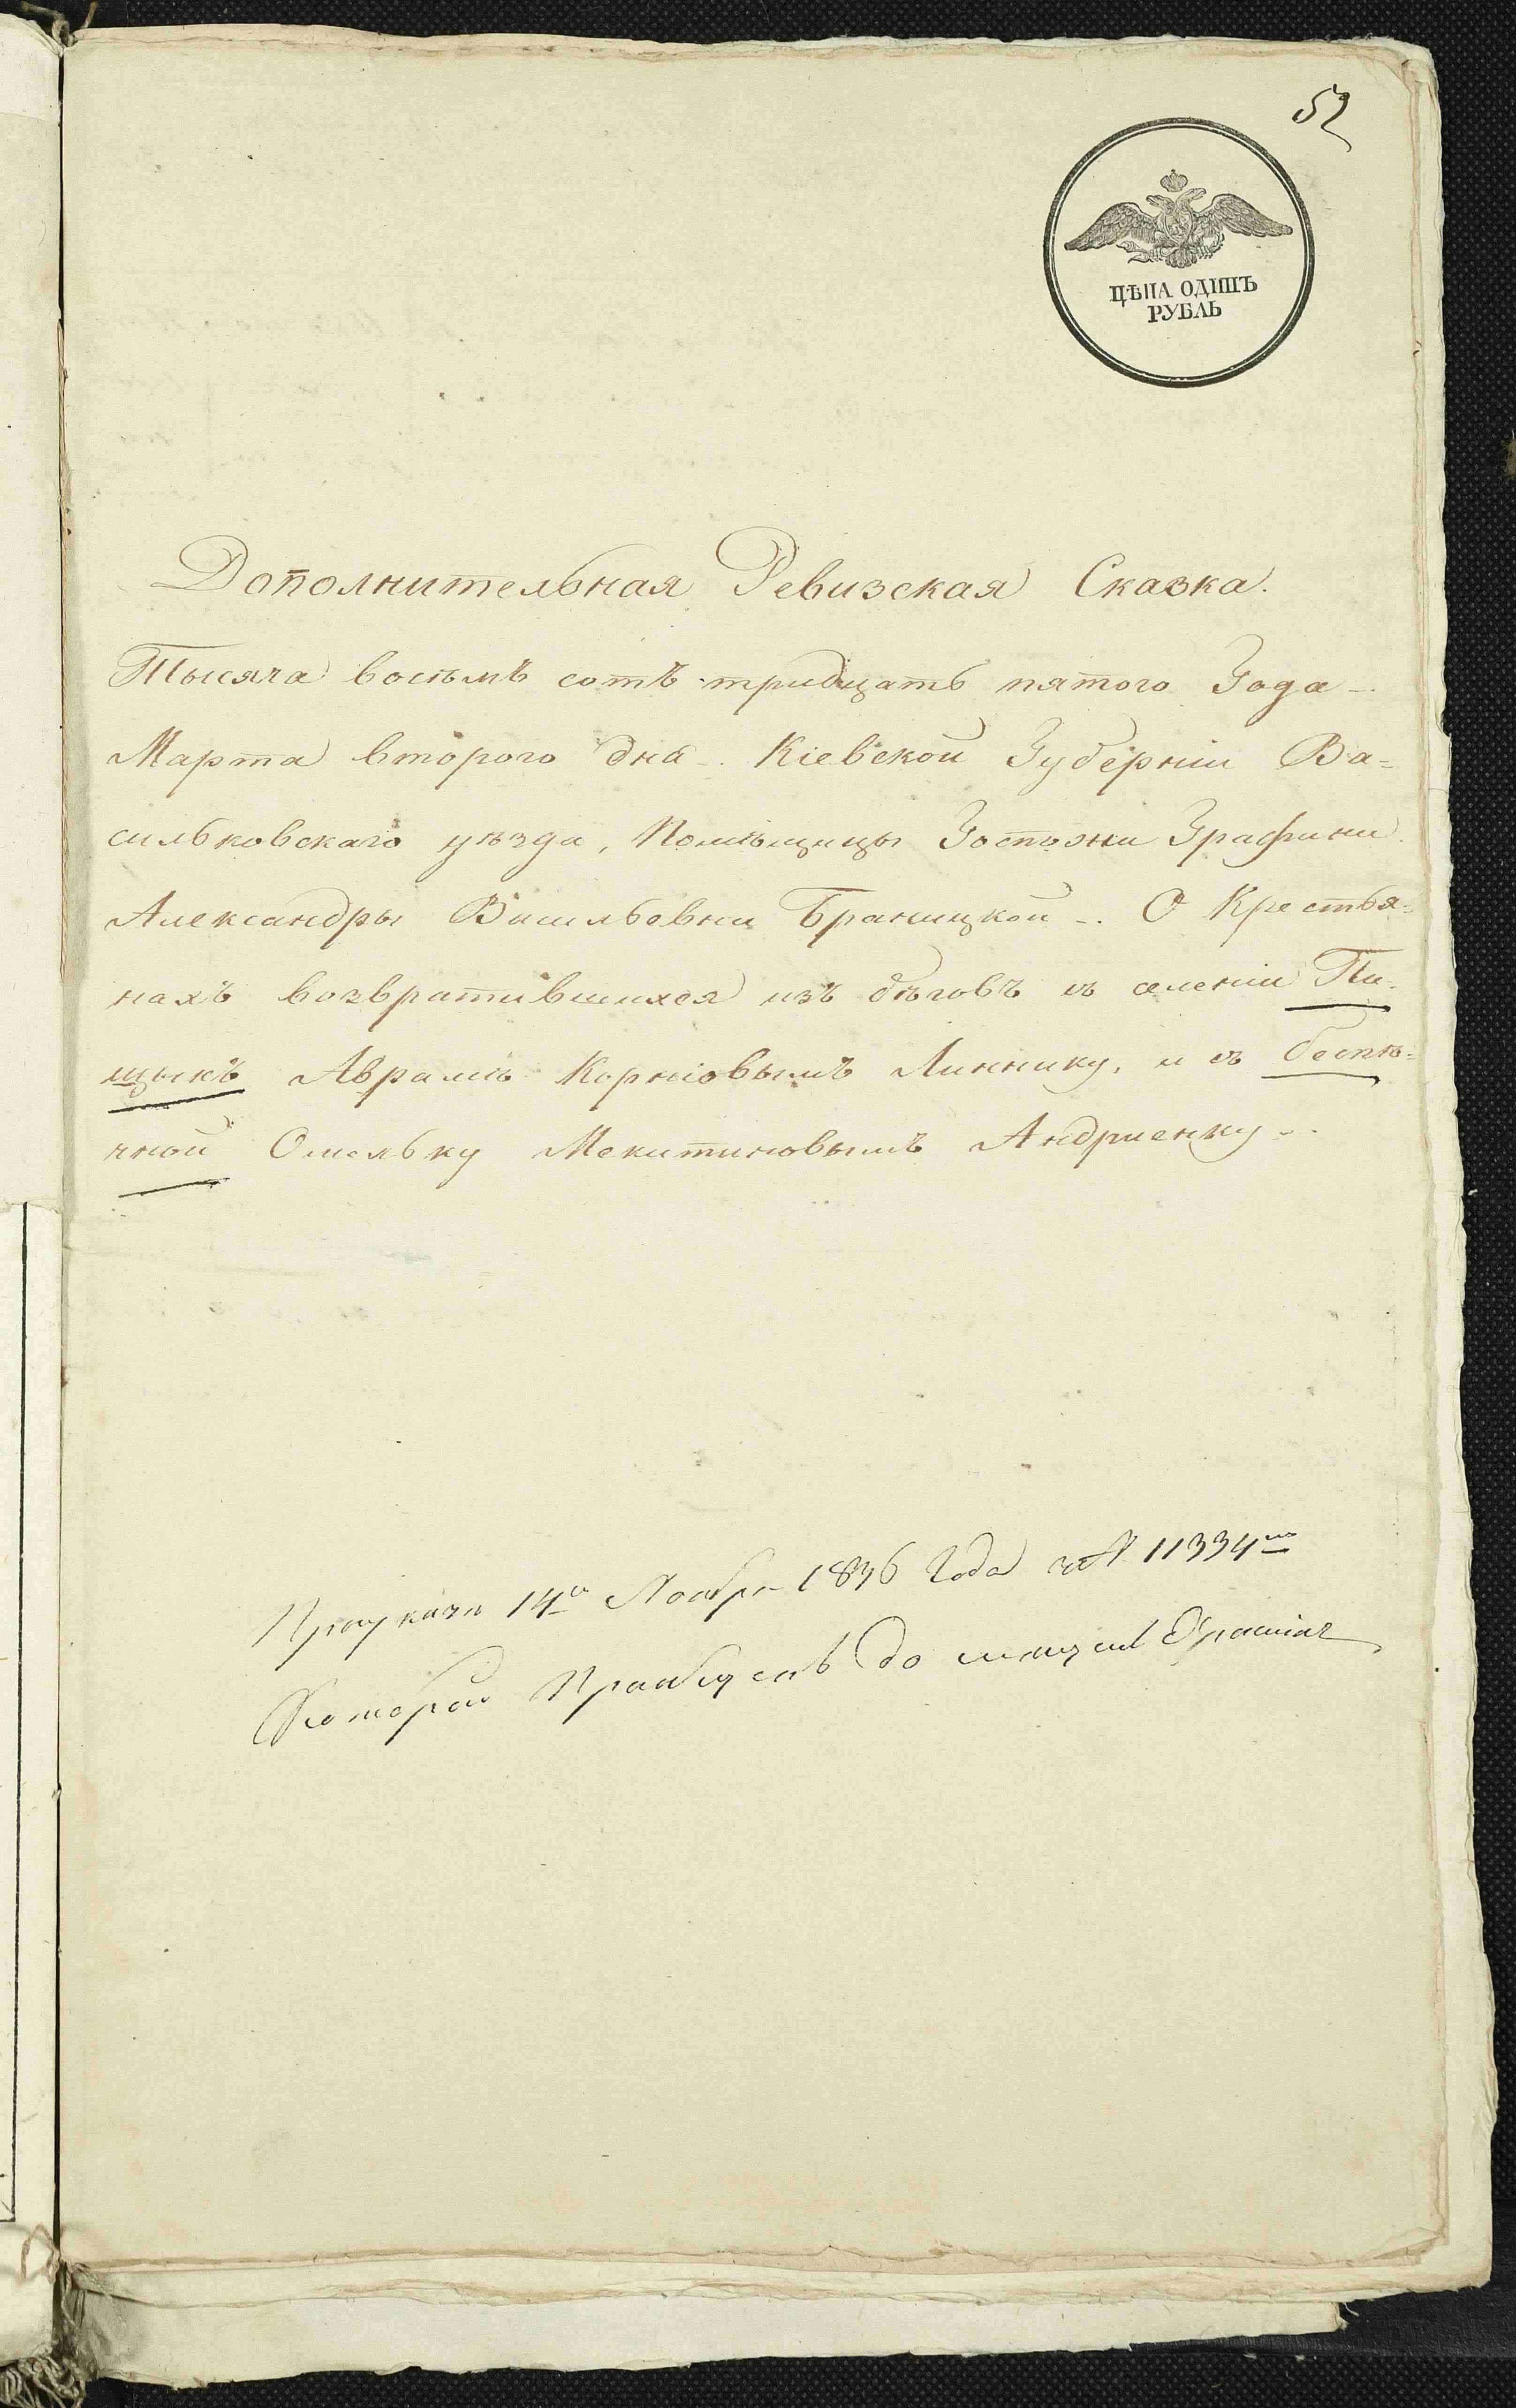 52
ЦѢНА ОДИНЪ
РУБЛЬ
Дополнительная Ревизская Сказка.
Тысяча восѣмъ сотъ тридцать пятого Года
Марта второго дня. Кіевской Губерніи Ва=
сильковскаго уѣзда, Помѣщицы Госпожи Графини
Александры Васильевны Браницкой. О Крестья=
нахъ возвратившихся изъ бѣговъ въ селеніи Пи=
щыкъ Аврамъ Корнѣовымъ Линнику, и въ беспѣ=
чной Омельку Мекитиновымъ Андриенку
При указѣ 14го Ноября 1836 Года за № 11334мъ